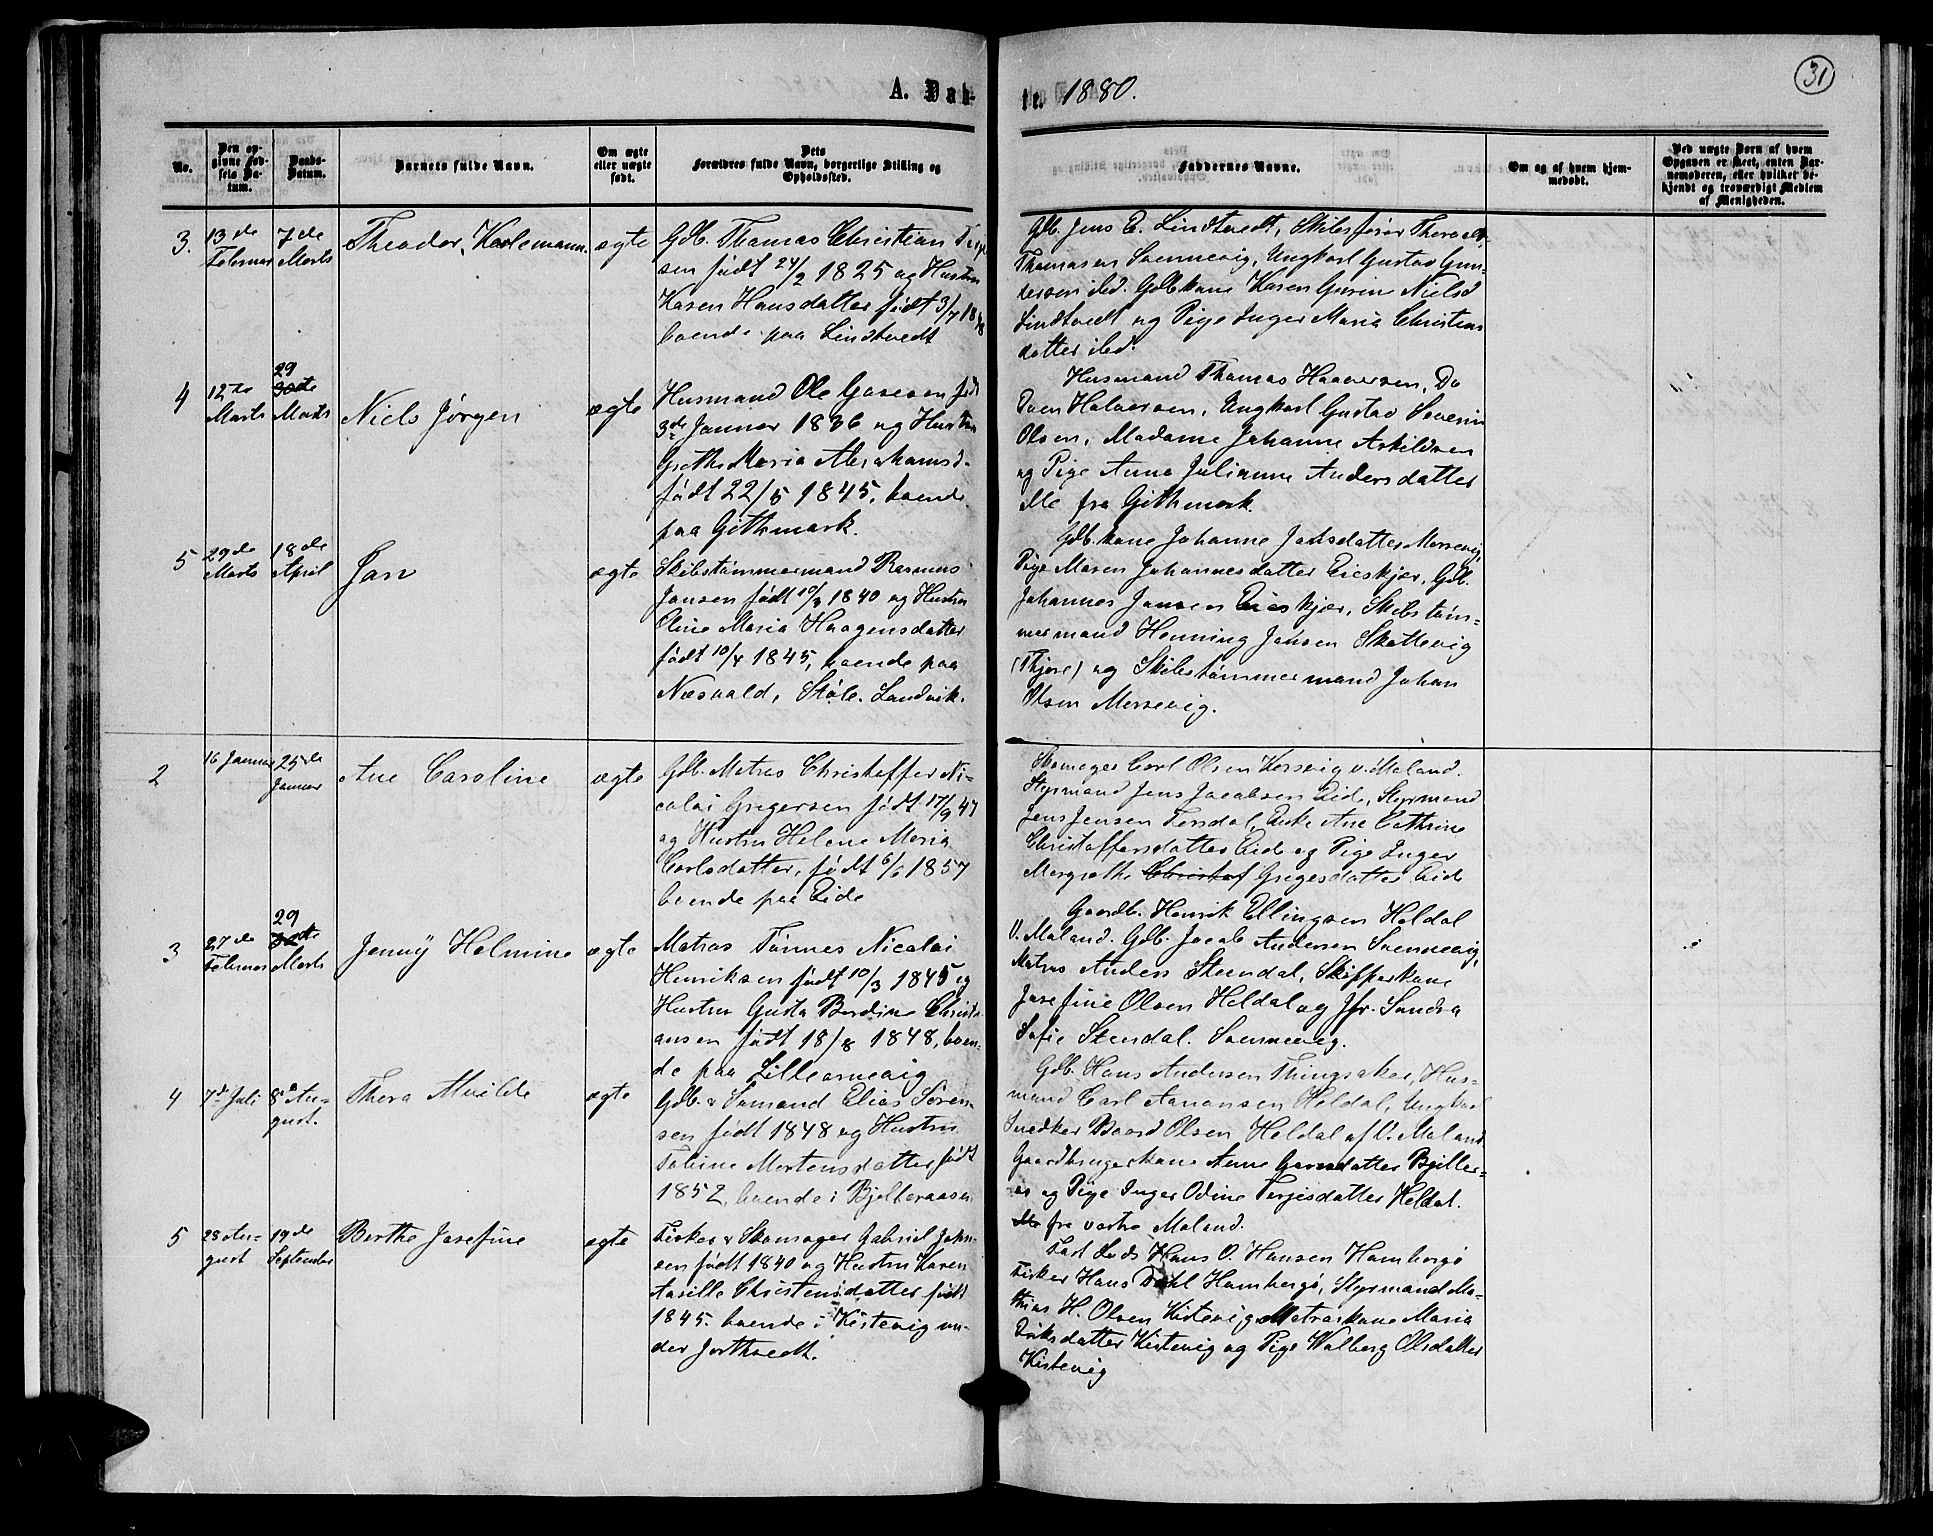 A. Dåb-
te. 1880.
31
No.
Den op-
givne Fød-
sels Da-
tum.
Daabs-
Datum.
Barnets fulde Navn.
Om ægte
eller uægte
født.
Dets
Forældres fulde Navn, borgerlige Stilling og
Opholdssted.
Faddernes Navne.
Om og af hvem hjem-
medøbt.
Ved uægte Børn af hvem
Opgaven er skeet, enten Bar-
nemoderen, eller hvilket be-
kjendt og troværdigt Medlem
af Menigheden.
3. 13de Februar
7de Marts
Theodor, Karlemann.
ægte
Gdb. Thomas Christian
sen født 24/2 1825 og Hustru
Karen Hansdatter født 3/7 18
boende paa Lindtvedt
Gdb. Jens E. Lindtvedt, Skibsfører
Thomasen Svennevig, Ungkarl Gustav Gun-
dersen ibd. Gdbkone Karen Gurine Nielsd
Lindtvedt og Pige Inger Maria Christians
datter ibd.
4 12te Marts
29 30te Marts
Niels Jørgen
ægte
Husmand Ole født
3de Januar 1836 og Hustru
Grethe Maria Abrahamsd.
født 22/5 1845, boende
paa Githmark.
Husmand Thomas Haaversen, Do
Sven Halvorsen, Ungkarl Gustav Severin
Olsen, Madame Johanne Askildsen
og Pige Anna Julianne Andersdatter
alle fra Githmark.
5 29de Marts
18de April
Jan
ægte
Skibstømmermand Rasmus
Jansen født 10/3 1840 og Hustru
Oline Maria Haagensdatter
født 10/4 1845, boende paa
Næsvald, Støle. Landvik.
Gdb.kone Johanne Jansdatter Morsevig,
Pige Maren Johannesdatter Eieskjær, Gdb.
Johannes Jansen Eieskjær, Skibstøm-
mermand Henning Jansen Skottevig
(Thjøre) og Skibstømmermand Johan
Olsen Morsevig.
2 16 Januar
25de Januar
Ane Caroline
ægte
Gdb. Matros Christoffer Ni-
colai Gregersen født 17/9 47
og Hustru Helene Maria
Carlsdatter, født 6/6 1857
boende paa Eide
Skomager Carl Olsen Korsvig v. Maland.
Styrmand Jens Jacobsen Eide, Styrmand
Jens Jensen Tørsdal, Enke Ane Cathrine
Christoffersdatter Eide og Pige Inger
Margrethe Christof Gregersdatter Eide
3 27de Februar
29 30te Marts
Jenny Helmine
ægte
Matros Tønnes Nicolai
Henriksen født 10/3 1845 og
Hustru Gusta Berdine Christi
ansen født 18/8 1848, boen-
de paa Lillearnevig
Gaardb. Henrik Ellingsen Heldal
V. Maland. Gdb. Jacob Andersen Svennevig,
Matros Anders Stendal, Skipperkone
Josefine Olsen Heldal og Jfr. Sandra
Sofie Stendal. Svennevig.
4 7de Juli
8de Au-
gust.
Thora Mulide
ægte
Gdb. & Sømand Elias Søren-
sen født 1848 og Hustru
Tobine Mortensdatter født
1852, boende i Bjelleraasen
Gdb. Hans Andersen Thingsaker, Hus-
mand Carl Aanonsen Heldal, Ungkarl
Snedker Baard Olsen Heldal af V. Maland
Gaardbrugerkone Anne datter Bjeller-
as og Pige Inger Odine Terjesdatter Heldal.
fra vestre Maland.
5 28 Au-
gust
19de September
Berthe Josefine
ægte
Fisker & Skomager Gabriel John-
sen født 1840 og Hustru Karen
Aasille Christensdatter født
1845. boende i Kistevig un-
der Jortveit.
Fast Lods Hans O. Hansen Hamborgø
Fisker Hans Dahl Hambergø, Styrmand Ma-
thias H. Olsen Kistevig, Matroskone Maria
Eriksdatter Kistevig og Pige Walberg Olsdatter
Kistevig